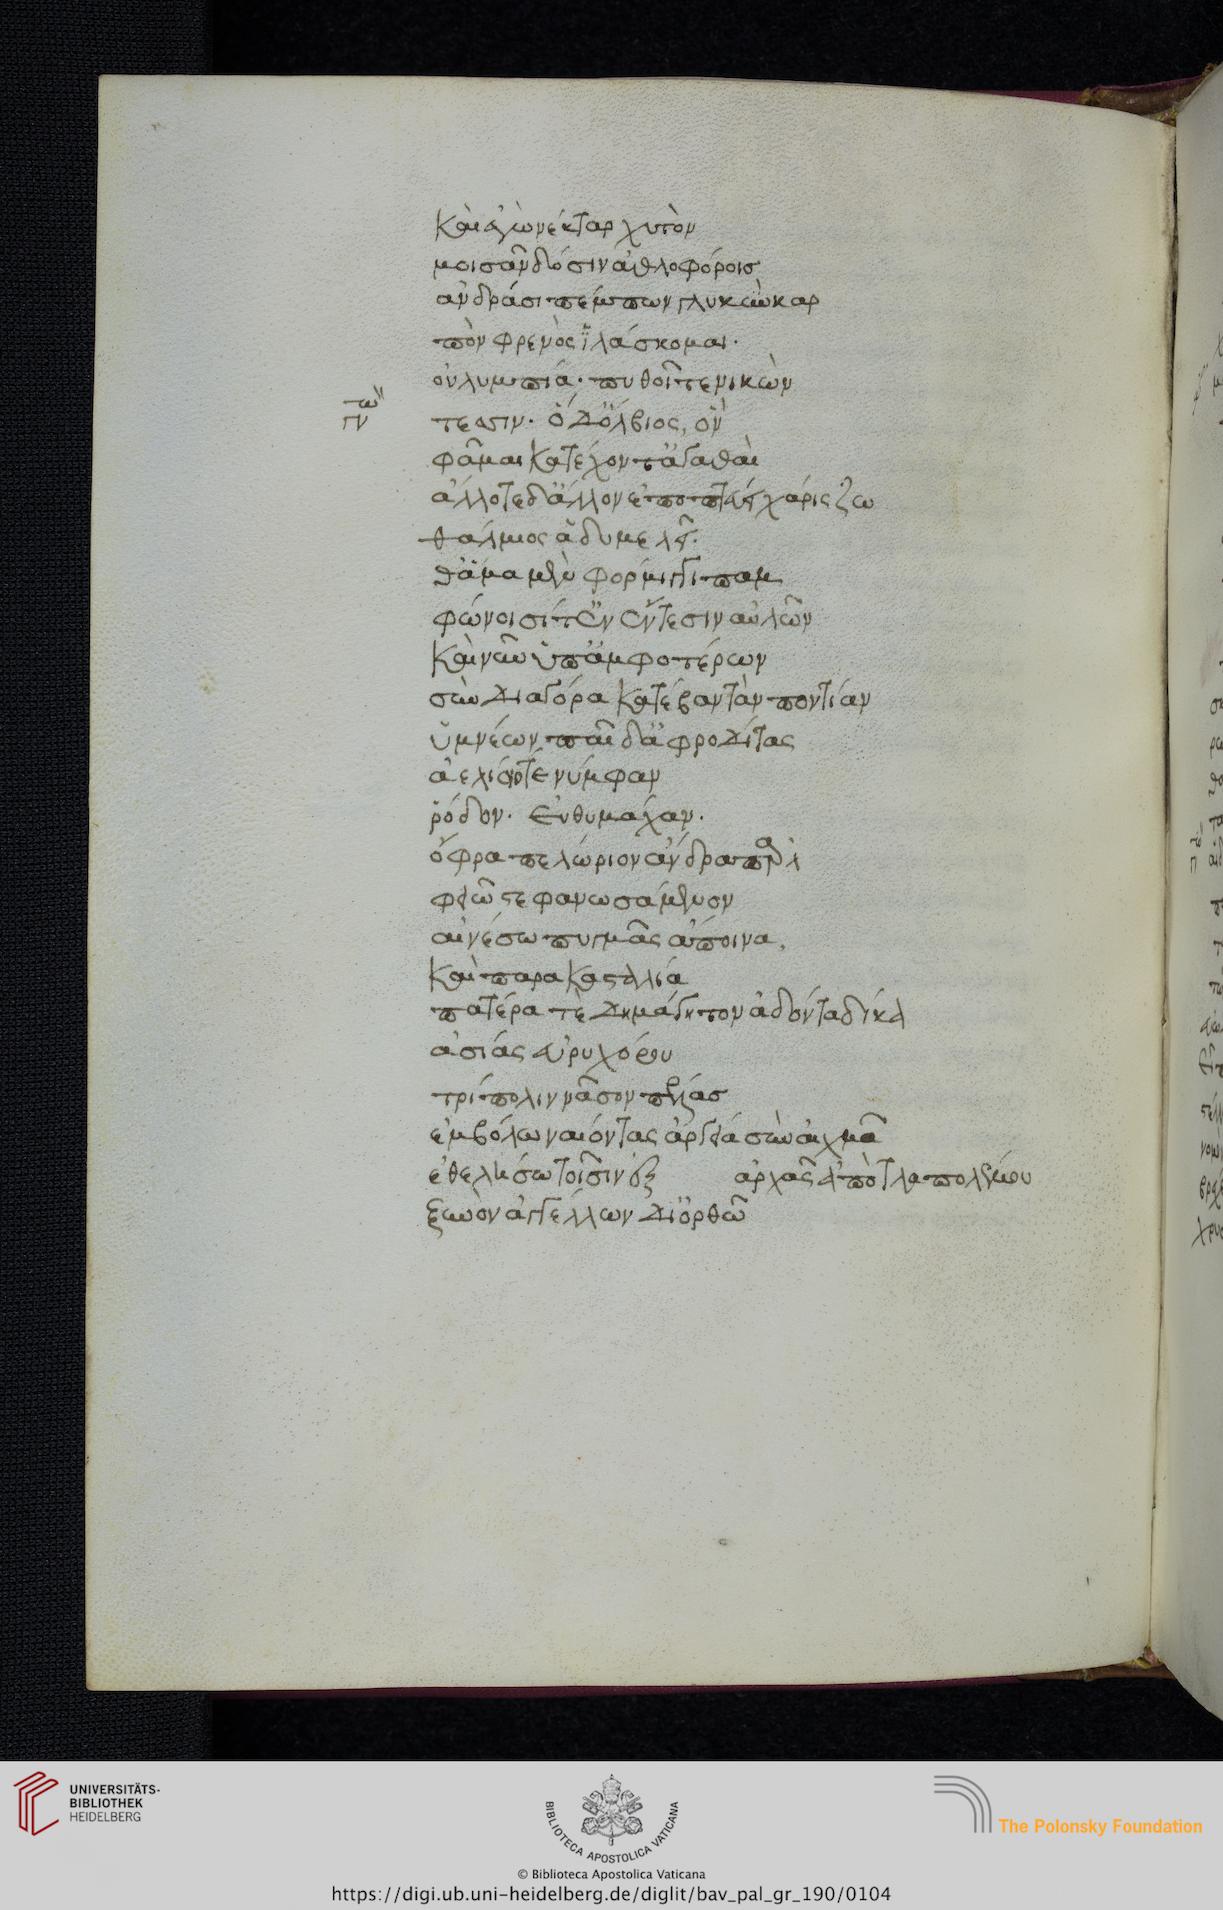 καὶ ἐγὼ νέκταρ χυτὸν
μοισᾶν δόσιν ἀθλοφόροισ
ἀνδράσι πέμπων γλυκὺν καρ
πὸν φρενὸς ἱλάσκομαι·
ὀλυμπία· πυθοῖ τε νικών
τεσσιν· ὁ δ' ὄλβιος, ὃν
φᾶμαι κατέχοντ' ἀγαθαὶ
ἄλλοτε δ' ἄλλον ἐποπτεύει χάρις ζω
θάλμιος ἁδυμελεῖ·
θ' ἅμα μὲν φόρμιγγι παμ
φώνοισί τ' ἐν ἔντεσιν αὐλῶν
καὶ νῦν ὑπ' ἀμφοτέρων
σὺν διαγόρα κατέβαν τὰν ποντίαν
ὑμνέων παῖδ' ἀφροδίτας
ἀελίοιό τε νύμφαν
ῥόδον· εὐθυμάχαν·
ὄφρα πελώριον ἄνδρα παρ' ἀλ
φειῶ στεφανωσάμενον
αἰνέσω πυγμᾶς ἄποινα,
καὶ παρὰ κασταλία
πατέρα τὲ δημάγητον ἁδόντα δίκα
ἀσίας εὐρυχόρου
τρίπολιν νᾶσον πέλας
ἐμβόλω ναίοντας ἀργεία σὺν αἰχμᾶ
ἐθελήσω τοῖσιν ἐξ ἀρχᾶς ἀπὸ τλαπολέμου
ξυνὸν ἀγγέλλων διορθῶ
UNIVERSITÄTS-
BIBLIOTHEK
HEIDELBERG
BIBLIOTECA APOSTOLICA VATICANA
The Polonsky Foundation
© Biblioteca Apostolica Vaticana
https://digi.ub.uni-heidelberg.de/diglit/bav_pal_gr_190/0104